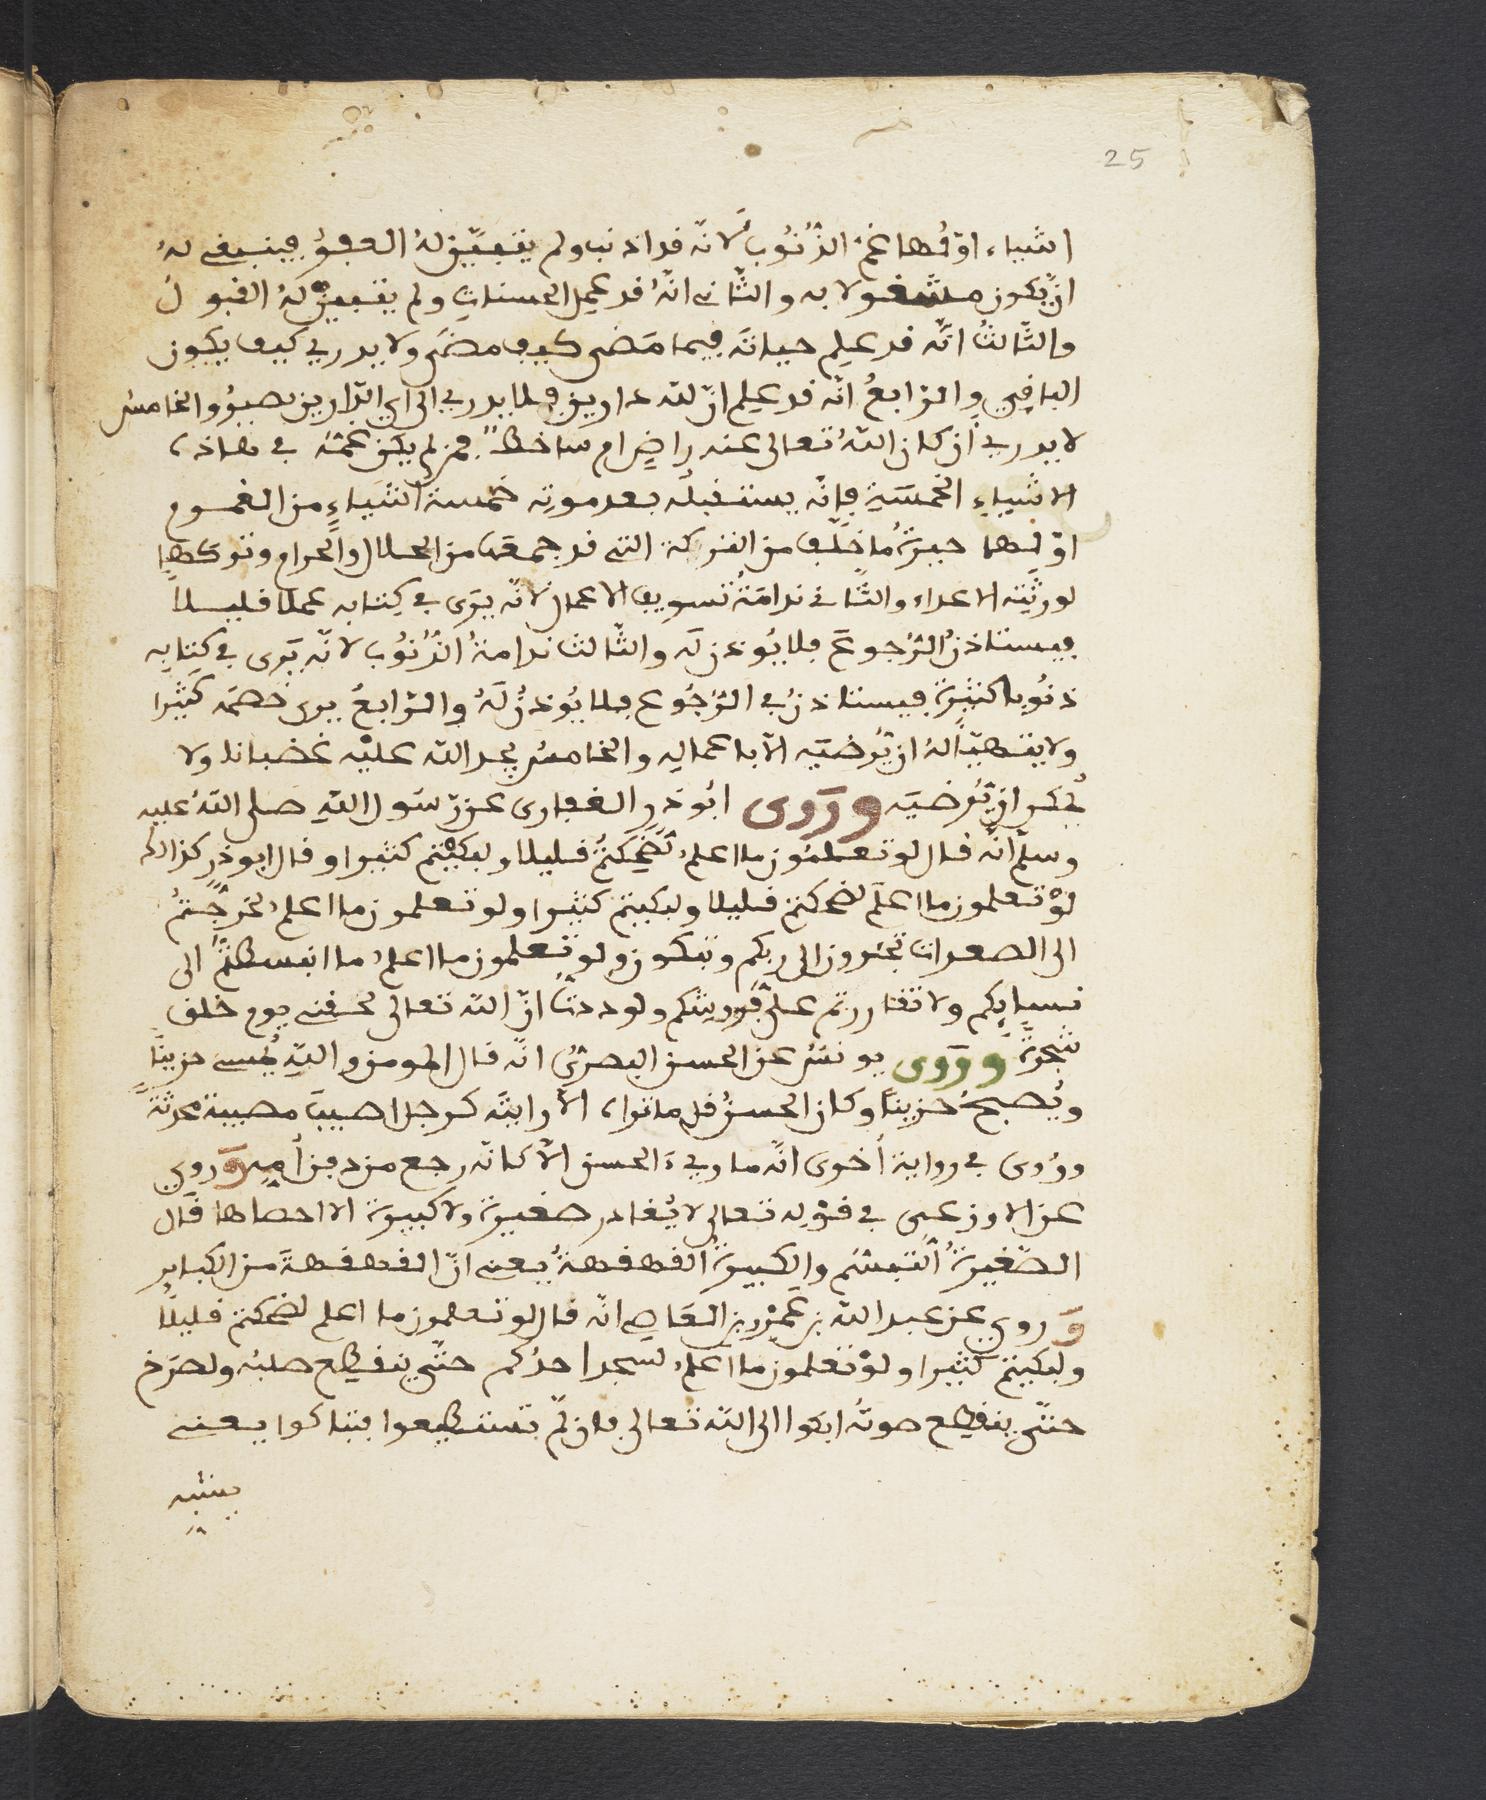 25
اشياء اوّلُها غمّ الذُنُوب لانّه قد اذنب ولم يتبيّن لهُ العفوُ فينبغى لهُ
ان يّكون مشغولا به والثّانى انّهُ قد عمِل الحسناتِ ولم يتبيّن لهُ القبولُ
والثّالثُ انّه قد علِم حياتَه فيما مَضى كيف مضَى ولا يدرى كيف يكون
الباقِى والرّابعُ انّه قد علِم انّ للّه دارين فلا يدرى الى اي الدّارين يصيرُ والخامسُ
لا يدرى أن كان اللّهُ تعالى عنه راضٍ ام ساخطٌ فمن لم يكن غمّه فى هاذه
الاشياءِ الخمسَةِ فإنّه يستقبله بعد موتِه خمسة اشياءٍ من الغموم
اوّلها حيرةُ ما خلّف من التركة التى قد جمعَها من الحلال والحرام وتركَها
لورثتِه الاعداء والثّانى ندامَةُ تسويف الاعمال لانّه يرَى فى كتابه عملا قليلاً
فيستاذنُ الرّجوعَ فلا يُوذن لَه والثّالث ندامةُ الذُنُوب لانّه يَرى فى كِتابِه
ذنُوبا كثيرة فيستاذنُ فى الرّجُوع فلا يُوذنُ لَهُ والرّابعُ يرى خَصمَه كثيرا
ولا يتهيّأ لهُ ان يّرضيَه الّا باعمالِه والخامسُ يجد اللّه عليْه غضبانا ولا
يُمكن ان يّرضيَه ورَوى ابُو ذر الغفارى عن رسَول اللّهِ صلى اللّهُ عليه
وسلّم انّه قال لو تعلمُون ما اعلم لضحِكتُمْ قليلا ولبكيْتم كثيرا وقال ابو ذر كذالك
لوْ تعلمون ما اعلَم لضحكتم قليلا ولبكيتم كثيرا ولو تعلمون ما اعلم لخرجتمُ
الى الصعدات تجئرون الى ربكم وتبكون ولو تعلمون ما اعلمُ ما انبسطتمُ الى
نسايِكم ولا تقاررتم على فُروشكم ولوددتُ انّ اللّه تعالى خلقنى يوم خلق
شجرةً ورَوى يونسُ عن الحسن البصرىُّ انّه قال المومن واللّهِ يُمسى حزينًا
ويُصبحُ حزينا وكان الحسنُ قل ما تراه الّا رايتَه كرجل اصيبَ مصيبة محرثةً
ورُوى فى رواية أخرى انّه ما رِيءَ الحسن الّا كانّه رجع من دفن أمِه وَروي
عن الاوزعى فى قوْلِه تعالى لا يُغادر صغيرة ولا كبيرة الا احصاها قال
الصّغيرةُ التبسّم والكبيرةُ القهقهةُ يعنى انّ القهقهةَ من الكباير
وَروي عن عبد اللّه بن عَمْرو بن العَاصِ انّه قال لو تعلمون ما اعلم لضحكتم قليلًا
ولبكيتم كثيرا ولوْ تعلمون ما اعلم لسجد احدُكم حتّى ينقطِع صلبُه ولصرَخ
حتّى ينقطِع صوتُه ابكوا الى اللّه تعالى فان لّم تستطيعوا فتباكوا يعنى